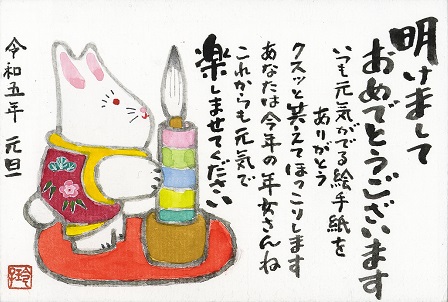 明けまして
おめでとうございます
いつも元気がでる絵手紙を
ありがとう
クスッと笑えてほっこりします
あなたは今年の年女さんね
これからも元気で
楽しませてください
令和五年 元旦